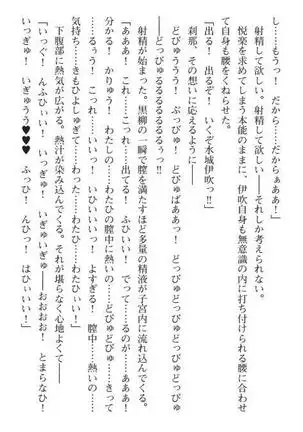 もうッ！　だから……だからぁああ！」
射精して欲しい。射精して欲しい――それしか考えられない。
悦楽を求めてしまう本能のままに、伊吹自身も無意識の内に打ち付けられる腰に合わせ
て自身も腰をくねらせた。
「出る！　出るぞ！　いくぞ水城伊吹っ!!」
刹那、その想いに応えるように――
どびゅううう！　ぶっびゅ！　どびゅばああ！　どっびゅどっびゅどっびゅどっびゅ
どっびゅるるるるるるっ!!
射精が始まった。黒柳の一瞬で膣を満たすほど多量の精液が子宮内に流れ込んでくる。
「あああ！　これ……こっれ……出てる！　ふひいい！　でって……ってるのが……あああ！
分かる！　かりゅう！　わたしの……わたひの膣中に……熱いの……どびゅどびゅ……きって
……るぅう！　こっれ……いいっ！　いひいいいっ！　よすぎる！　膣中……熱いの……
気持ち……きもひよしゅぎて……わたっひ……わたひ……わたひぃい！」
下腹部に熱気が広がる。熱汁が染み込んでくる。それが堪らなく心地よくて――
「いっぐ！　んふひいい！　いっぎゅ！　いぎゅいぎゅ――おおおお！　とまらなひ！
いっぎゅ！　いぎゅうう♥♥♥　ふっひ！　んひっ！　はひいいい！」